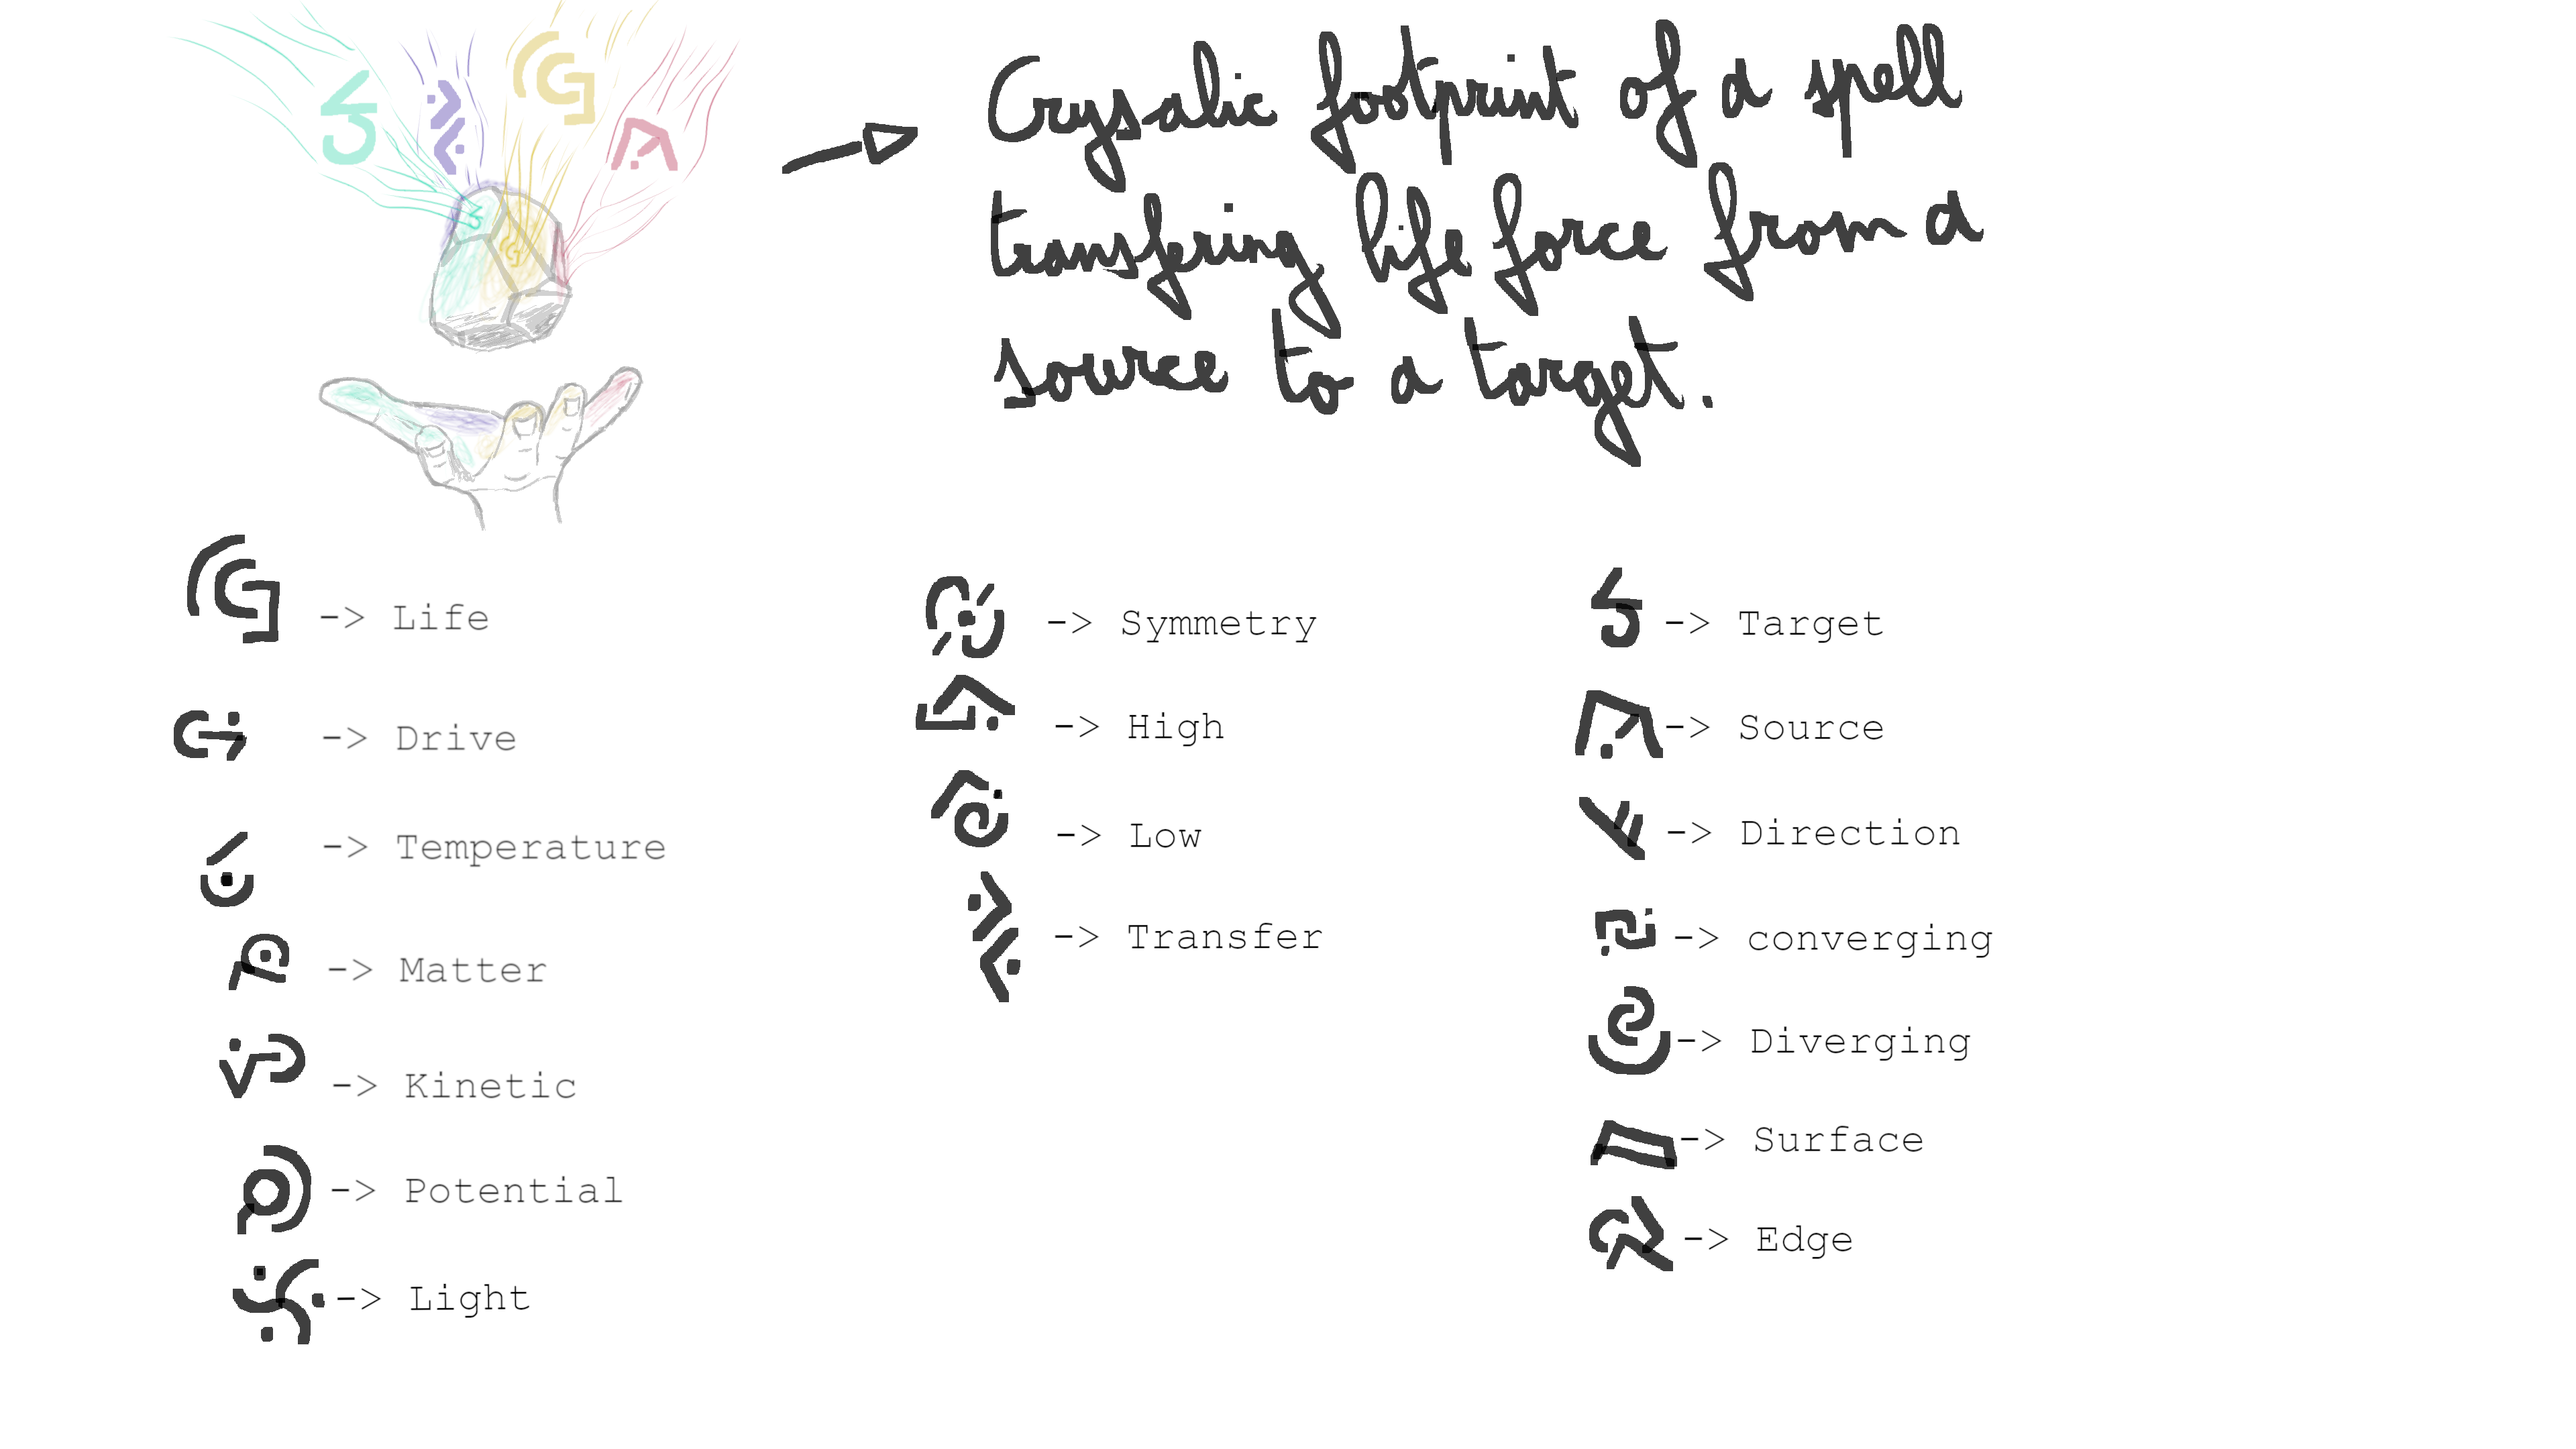 Crysalic footprint of a spell
transfering life force from a
source to a target.
-> Life
-> Drive
-> Temperature
-> Matter
-> Kinetic
-> Potential
-> Light
-> Symmetry
-> High
-> Low
-> Transfer
-> Target
-> Source
-> Direction
-> converging
-> Diverging
-> Surface
-> Edge